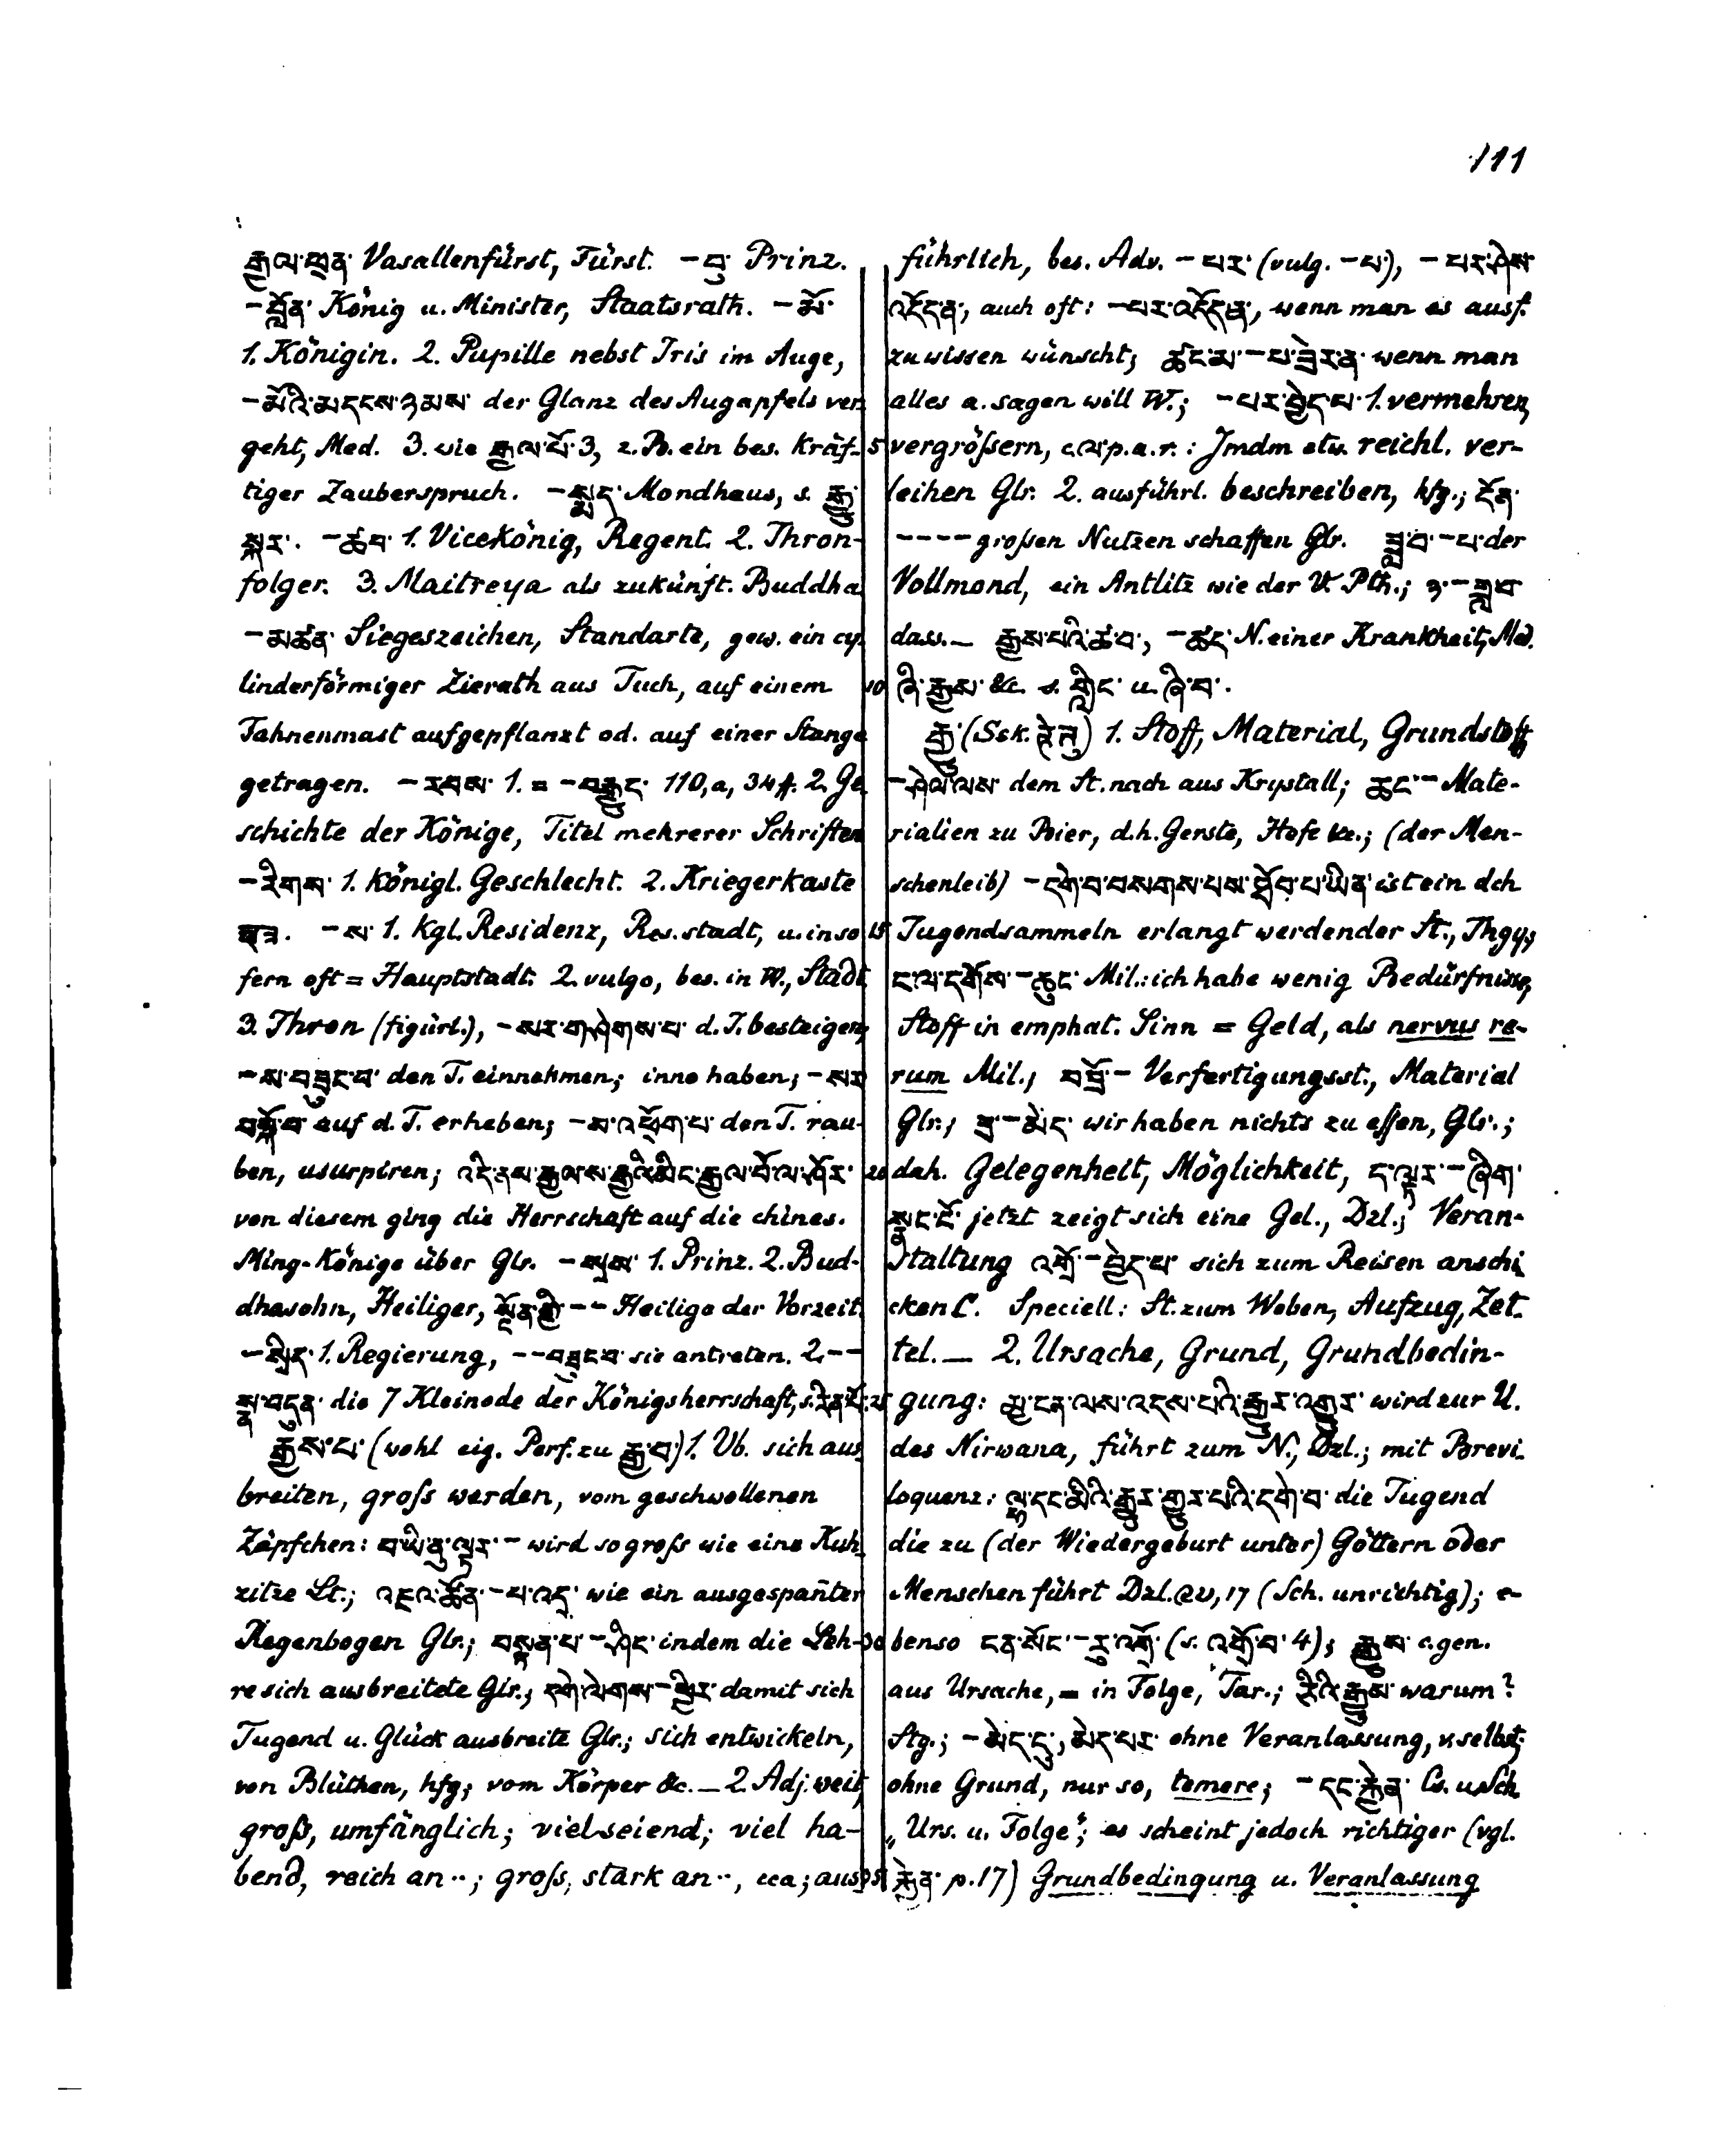 111
རྒྱལ་ཕྲན་ Vasallenfürst, Fürst. – བུ་ Prinz.
– བློན་ König u. Minister, Staatsrath. – མོ་
1. Königin. 2. Pupille nebst Iris im Auge,
– མོའི་མདངས་ཉམས་ der Glanz des Augapfels ver
geht, Med. 3. wie རྒྱལ་པོ་ 3, z.B. ein bes. kräf-
tiger Zauberspruch. – སྨད་ Mondhaus, s. རྒྱུ་
སྐར་. – ཚབ་ 1. Vicekönig, Regent. 2. Thron-
folger. 3. Maitreya als zukünft. Buddha
– མཚན་ Siegeszeichen, Standarte, gew. ein cy-
linderförmiger Zierath aus Tuch, auf einem
Fahnenmast aufgepflanzt od. auf einer Stange
getragen. – རབས་ 1. = – བརྒྱུད་ 110, a, 34 ff. 2. Ge
schichte der Könige, Titel mehrerer Schriften
– རིགས་ 1. königl. Geschlecht. 2. Kriegerkaste
– ས་ 1. Kgl. Residenz, Res. stadt, u. inso
fern oft = Hauptstadt. 2. vulgo, bes. in W., Stadt
3. Thron (figürl.), – སར་གཤེགས་པ་ d. T. besteigen,
– ས་བཟུང་བ་ den T. einnehmen; inne haben; – སར་
བསྐོ་བ་ auf d. T. erheben; – ས་འཕྲོག་པ་ den T. rau-
ben, usurpiren; འདི་ནས་རྒྱལ་ས་རྒྱའི་མིང་རྒྱལ་པོ་ལ་ཤོར་
von diesem ging die Herrschaft auf die chines.
Ming-Könige über Glr. – སྲས་ 1. Prinz. 2. Bud-
dhasohn, Heiliger, སྔོན་གྱི་ – – Heilige der Vorzeit.
– སྲིད་ 1. Regierung, – – བཟུང་བ་ sie antreten. 2. – –
སྣ་བདུན་ die 7 Kleinode der Königsherrschaft, s. རིན་པོ་
རྒྱས་པ་ (wohl eig. Perf. zu རྒྱ་བ་) 1. Vb. sich aus
breiten, groſs werden, vom geschwollenen
Zäpfchen: བའི་ནུ་ལྟར་ – wird so groſs wie eine Kuh-
zitze Lt.; འཇའ་ཚོན་ – པ་འདྲ་ wie ein ausgespan̄ter
Regenbogen Glr.; བསྟན་པ་ – ཤིང་ indem die Leh-
re sich ausbreitete Glr.; དགེ་ལེགས་ – ཕྱིར་ damit sich
Tugend u. Glück ausbreite Glr.; sich entwickeln,
von Blüthen, hfg; vom Körper &c. — 2. Adj. weit,
groſs, umfänglich; viel seiend; viel ha-
bend, reich an ..; groſs, stark an .., cca; aus
führlich, bes. Adv. – པར་ (vulg. – པ་), – པར་ཤེས་
འདོད་ན་, auch oft: – པར་འདོད་ན་, wenn man es ausf.
zu wissen wünscht; ཚང་མ་ – པ་ཟེར་ན་ wenn man
alles a. sagen will W.; – པར་བྱེད་པ་ 1. vermehren,
5 vergröſsern, c. ལ་ p.a.r.: Jmdm etw. reichl. ver-
leihen Glr. 2. ausführl. beschreiben, hfg.; དོན་
– – – – groſsen Nutzen schaffen Glr. ཟླ་བ་ – པ་ der
Vollmond, ein Antlitz wie der V. Pth.; ཉ་ – ཟླ་བ་
dass. — རྒྱས་པའི་ཚ་བ་, – ཚད་ N. einer Krankheit, Med.
10 ཞི་རྒྱས་ &c. s. གླིང་ u. ཞི་བ་.
རྒྱུ་ (Ssk. हेतु) 1. Stoff, Material, Grundstoff
– ཤེལ་ལས་ dem St. nach aus Krystall; ཆང་ – Mate-
rialien zu Bier, d.h. Gerste, Hefe &c.; (der Men-
schenleib) – དགེ་བ་བསགས་པས་ཐོབ་པ་ཡིན་ ist ein dch
15 Tugendsammeln erlangt werdender St., Thgy;
ང་ལ་དགོས་ – ཆུང་ Mil.: ich habe wenig Bedürfnisse,
Stoff in emphat. Sinn = Geld, als nervus re-
rum Mil.; བཟོ་ – Verfertigungsst., Material
Glr.; ཟ་ – མེད་ wir haben nichts zu eſsen, Glr.;
20 dah. Gelegenheit, Möglichkeit, ད་ལྟར་ – ཞིག་
སྣང་ངོ་ jetzt zeigt sich eine Gel., Dzl.; Veran-
staltung འགྲོ་ – བྱེད་པ་ sich zum Reisen anschi
cken C. Speciell: St. zum Weben, Aufzug, Zet-
tel. — 2. Ursache, Grund, Grundbedin-
25 gung: མྱ་ངན་ལས་འདས་པའི་རྒྱུར་འགྱུར་ wird zur U.
des Nirwana, führt zum N., Dzl.; mit Brevi-
loquenz: ལྷ་དང་མིའི་རྒྱུར་གྱུར་པའི་དགེ་བ་ die Tugend
die zu (der Wiedergeburt unter) Göttern oder
Menschen führt Dzl. 17 (Sch. unrichtig); e-
30 benso ངན་སོང་ – རུ་འགྲོ་ (s. འགྲོ་བ་ 4); རྒྱུས་ c. gen.
aus Ursache, = in Folge, Tar.; ཅིའི་རྒྱུས་ warum?
Stg.; – མེད་དུ་, མེད་པར་ ohne Veranlassung, v. selbst;
ohne Grund, nur so, temere; – དང་རྐྱེན་ Cs. u. Sch.
„Urs. u. Folge“; es scheint jedoch richtiger (vgl.
35 རྐྱེན་ p. 17) Grundbedingung u. Veranlassung